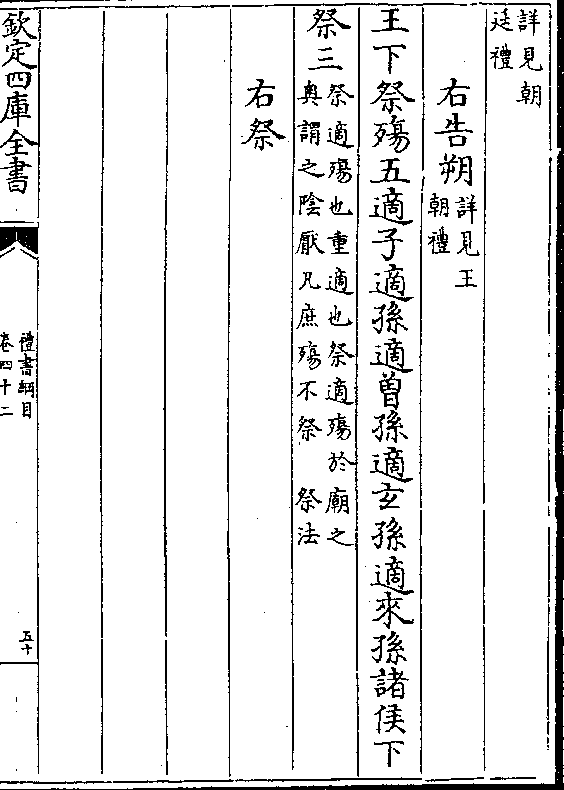 詳見朝
廷禮
右告朔
詳見王
朝禮
王下祭殤五適子適孫適曾孫適玄孫適來孫諸侯下
祭三
祭適殤也重適也祭適殤於廟之
奥謂之陰厭凡庶殤不祭　祭法
右祭
欽定四庫全書
禮書綱目
卷四十二
五十